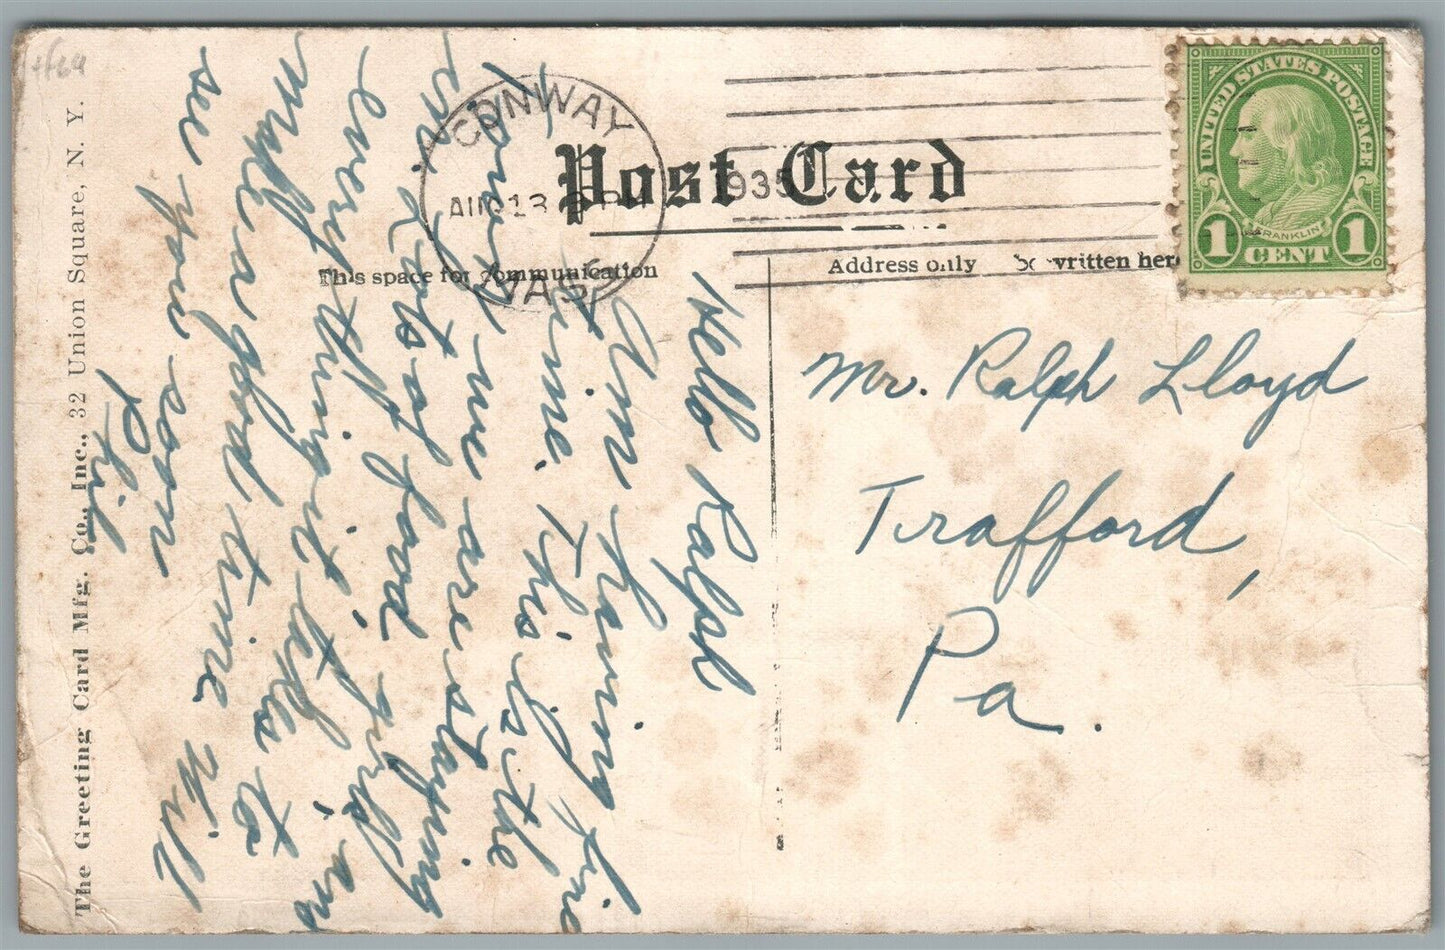 Post Card
This space for communication
Address only be written here
CONWAY
AUG 13
1935
MASS
UNITED STATES POSTAGE
FRANKLIN
1 CENT 1
Mr. Ralph Lloyd
Trafford,
Pa.
Hello Ralph
Am having fine
time. This is the
way we are staying
on. Lots of food
everything it takes to
make a good time. Will
see you soon
Phil
The Greeting Card Mfg. Co., Inc., 32 Union Square, N. Y.